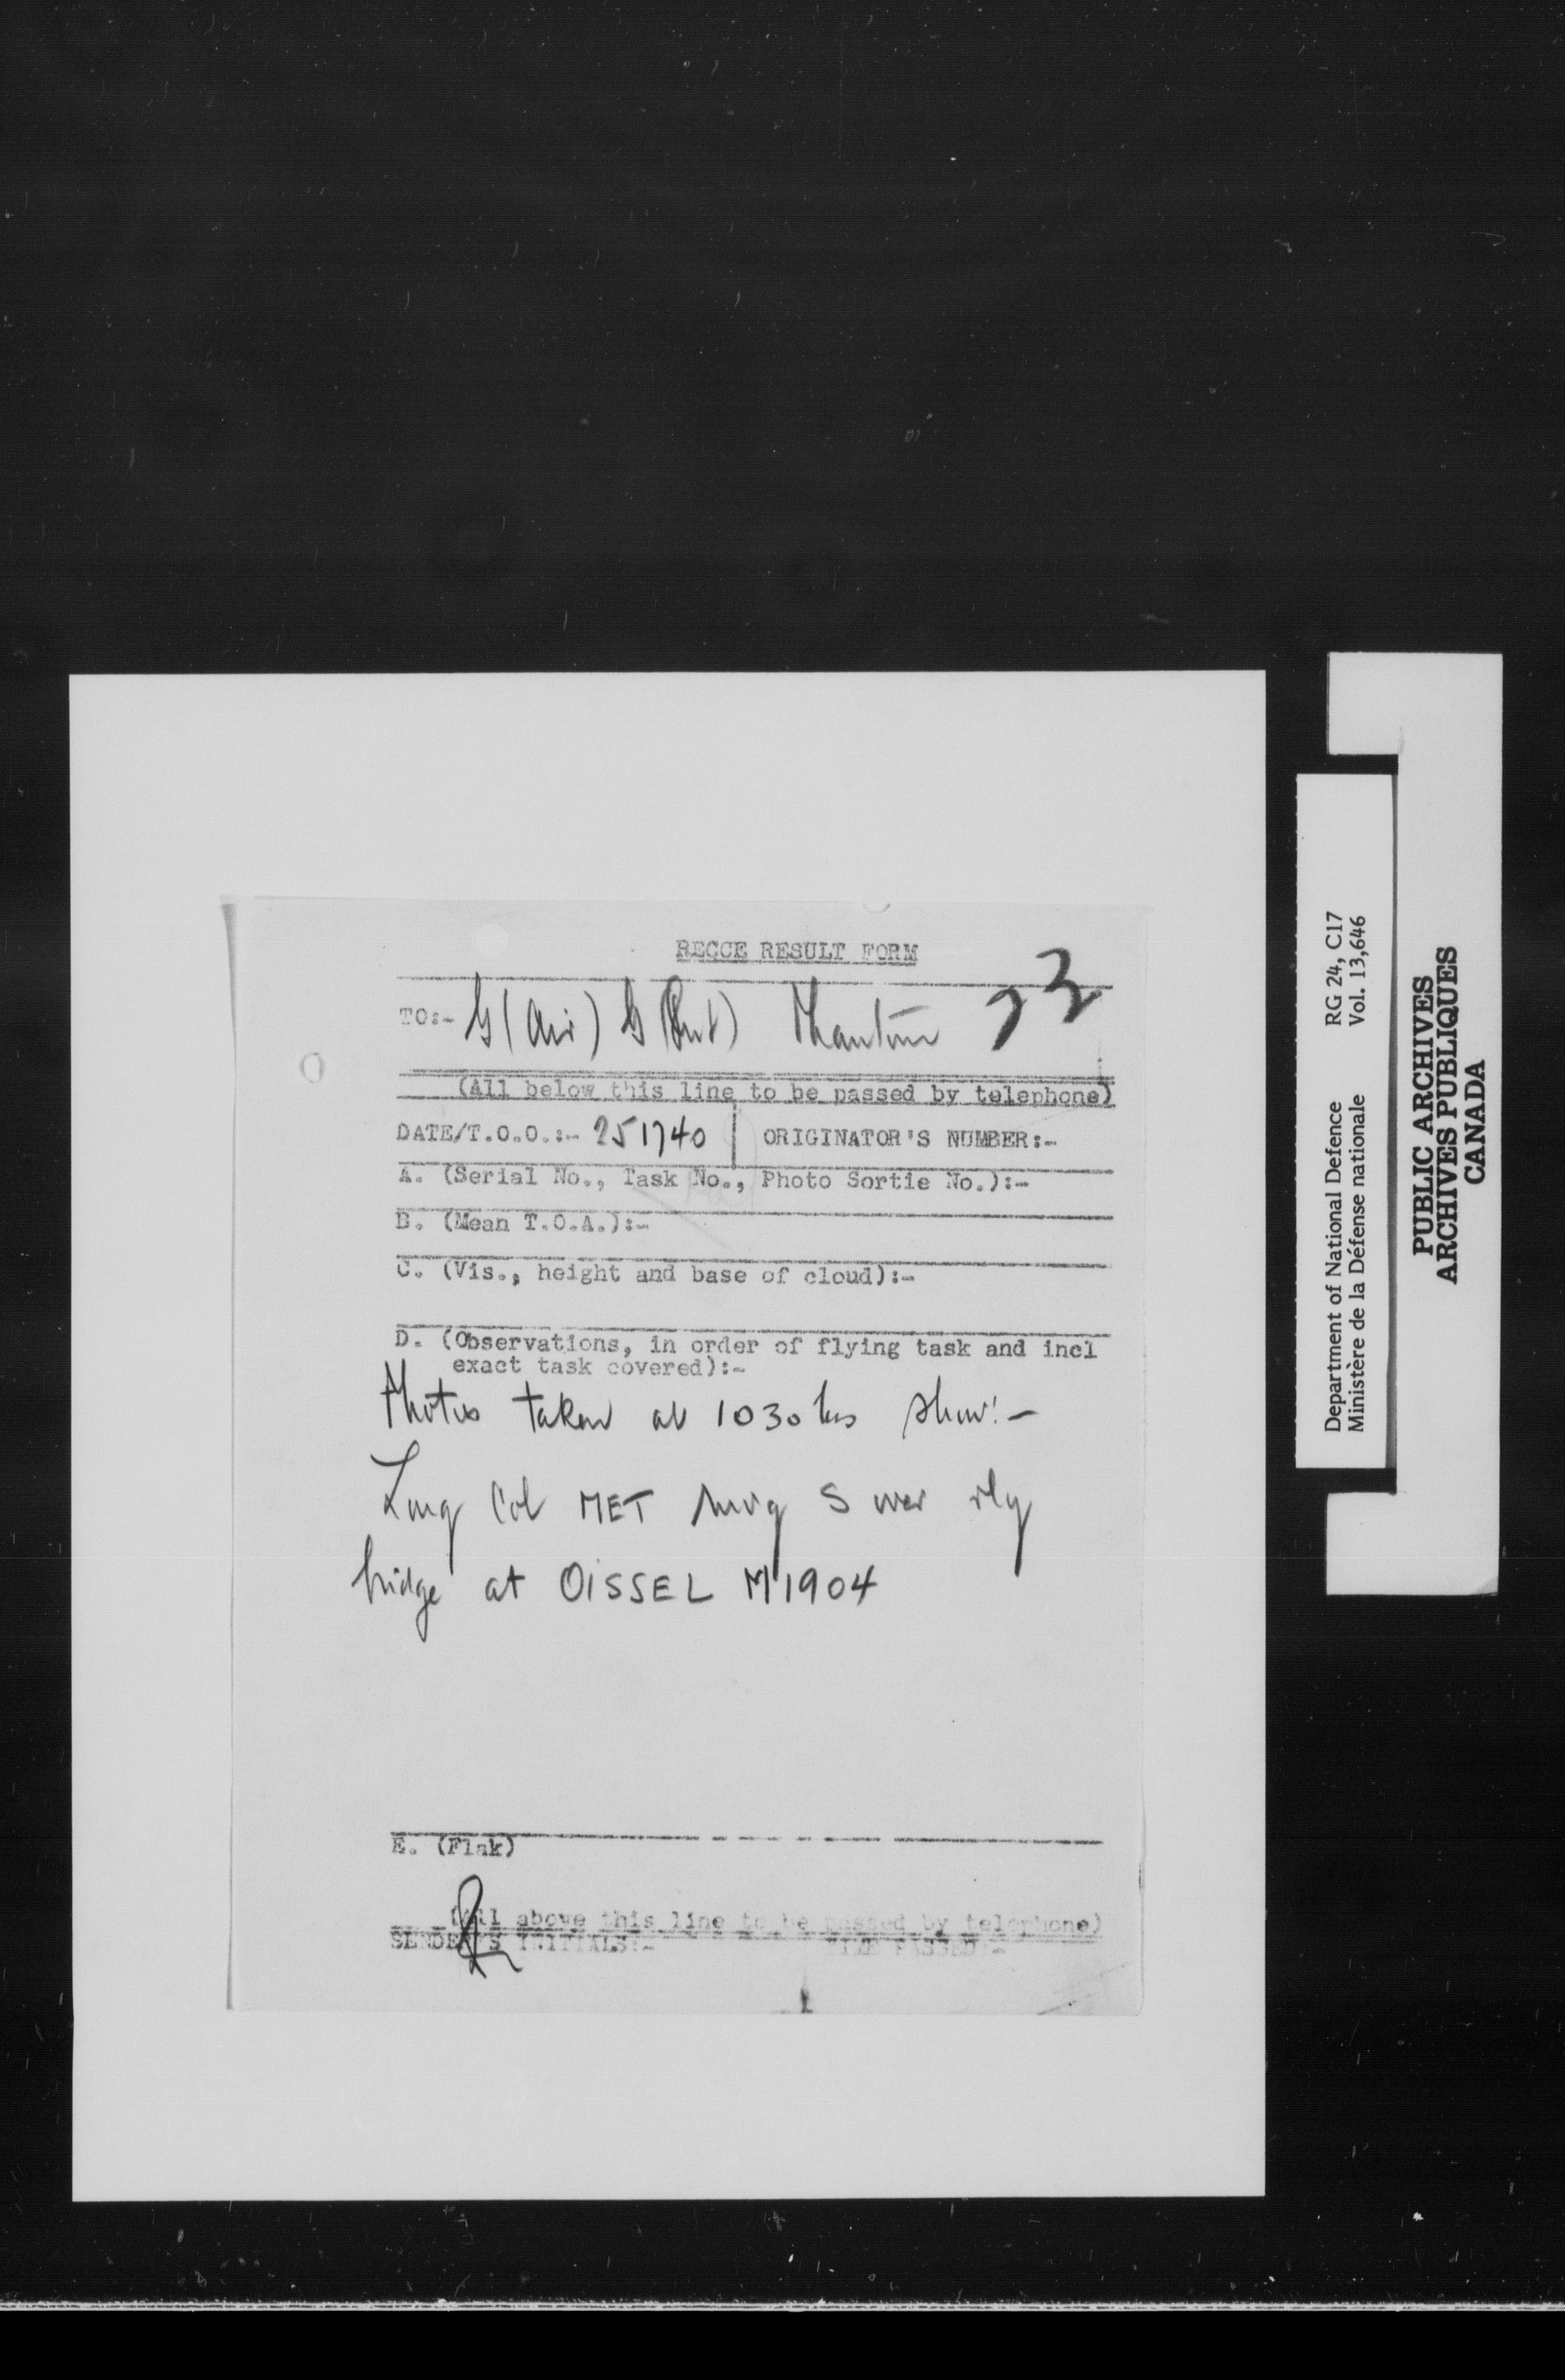 RECCE RESULT FORM
23
TO:- G(Air) G(Int) Phantom
(All below this line to be passed by telephone)
DATE/T.O.O.:- 251740 ORIGINATOR'S NUMBER:-
A. (Serial No., Task No., Photo Sortie No.):-
B. (Mean T.O.A.):-
C. (Vis., height and base of cloud):-
D. (Observations, in order of flying task and incl
exact task covered):-
Photos taken at 1030 hrs show:-
Long Col MET mvg S over rly
bridge at OISSEL M1904
E. (Flak)
(All above this line to be passed by telephone)
SENDER'S INITIALS:- TIME PASSED:-
Department of National Defence RG 24, C17
Ministère de la Défense nationale Vol. 13,646
PUBLIC ARCHIVES
ARCHIVES PUBLIQUES
CANADA